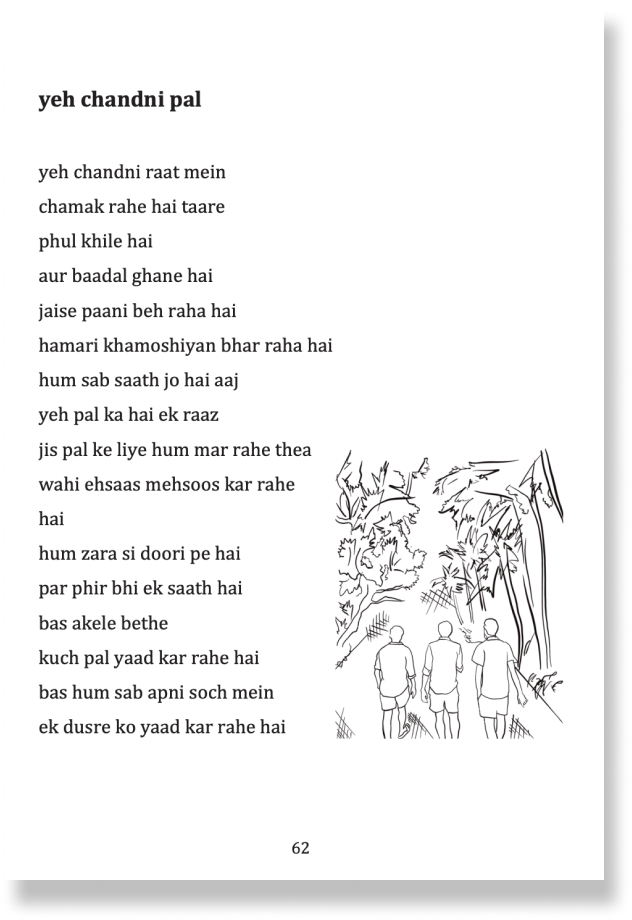 yeh chandni pal
yeh chandni raat mein
chamak rahe hai taare
phul khile hai
aur baadal ghane hai
jaise paani beh raha hai
hamari khamoshiyan bhar raha hai
hum sab saath jo hai aaj
yeh pal ka hai ek raaz
jis pal ke liye hum mar rahe thea
wahi ehsaas mehsoos kar rahe
hai
hum zara si doori pe hai
par phir bhi ek saath hai
bas akele bethe
kuch pal yaad kar rahe hai
bas hum sab apni soch mein
ek dusre ko yaad kar rahe hai
62